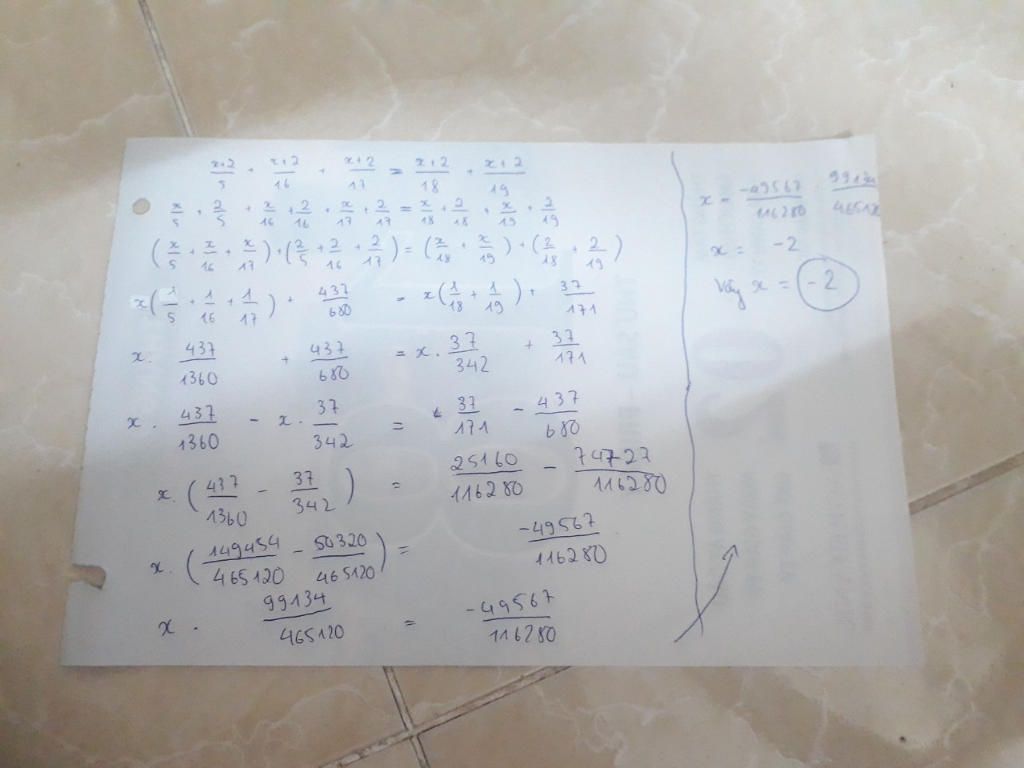 x+2/5 + x+2/16 + x+2/17 = x+2/18 + x+2/19
x/5 + 2/5 + x/16 + 2/16 + x/17 + 2/17 = x/18 + 2/18 + x/19 + 2/19
(x/5 + x/16 + x/17) + (2/5 + 2/16 + 2/17) = (x/18 + x/19) + (2/18 + 2/19)
x(1/5 + 1/16 + 1/17) + 437/680 = x(1/18 + 1/19) + 37/171
x. 437/1360 + 437/680 = x. 37/342 + 37/171
x. 437/1360 - x. 37/342 = 37/171 - 437/680
x. (437/1360 - 37/342) = 25160/116280 - 74727/116280
x. (149454/465120 - 50320/465120) = -49567/116280
x. 99134/465120 = -49567/116280
x = -49567/116280 : 99134/465120
x = -2
Vậy x = -2